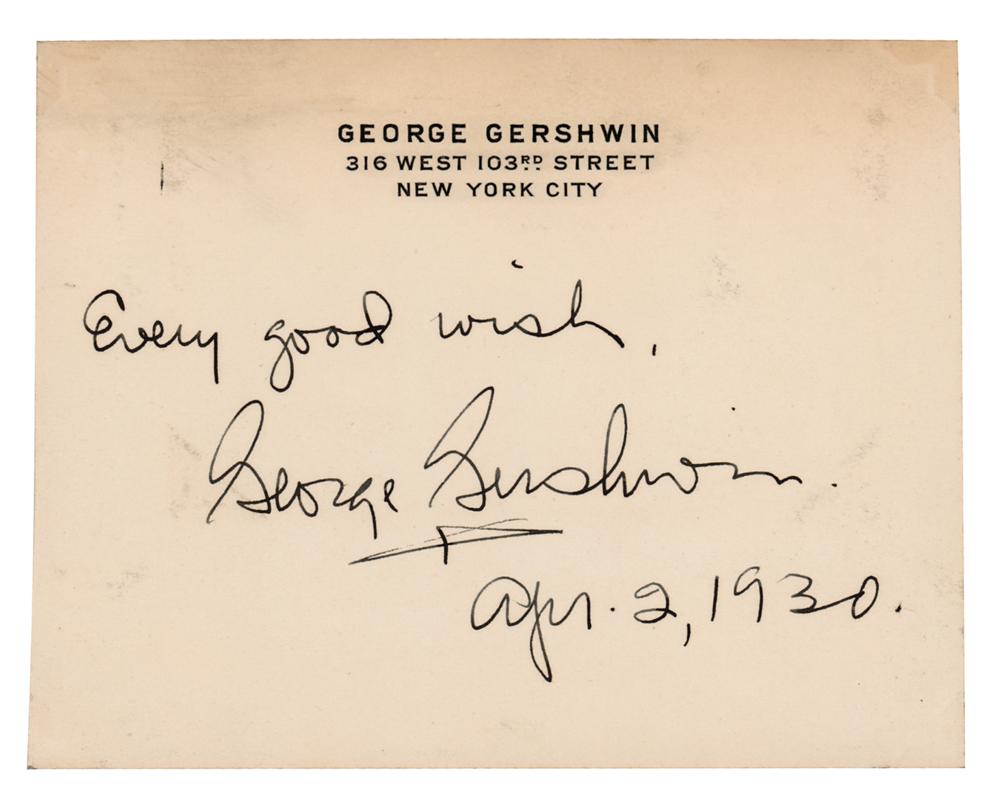 GEORGE GERSHWIN
316 WEST 103RD STREET
NEW YORK CITY
Every good wish,
George Gershwin.
Apr. 2, 1930.